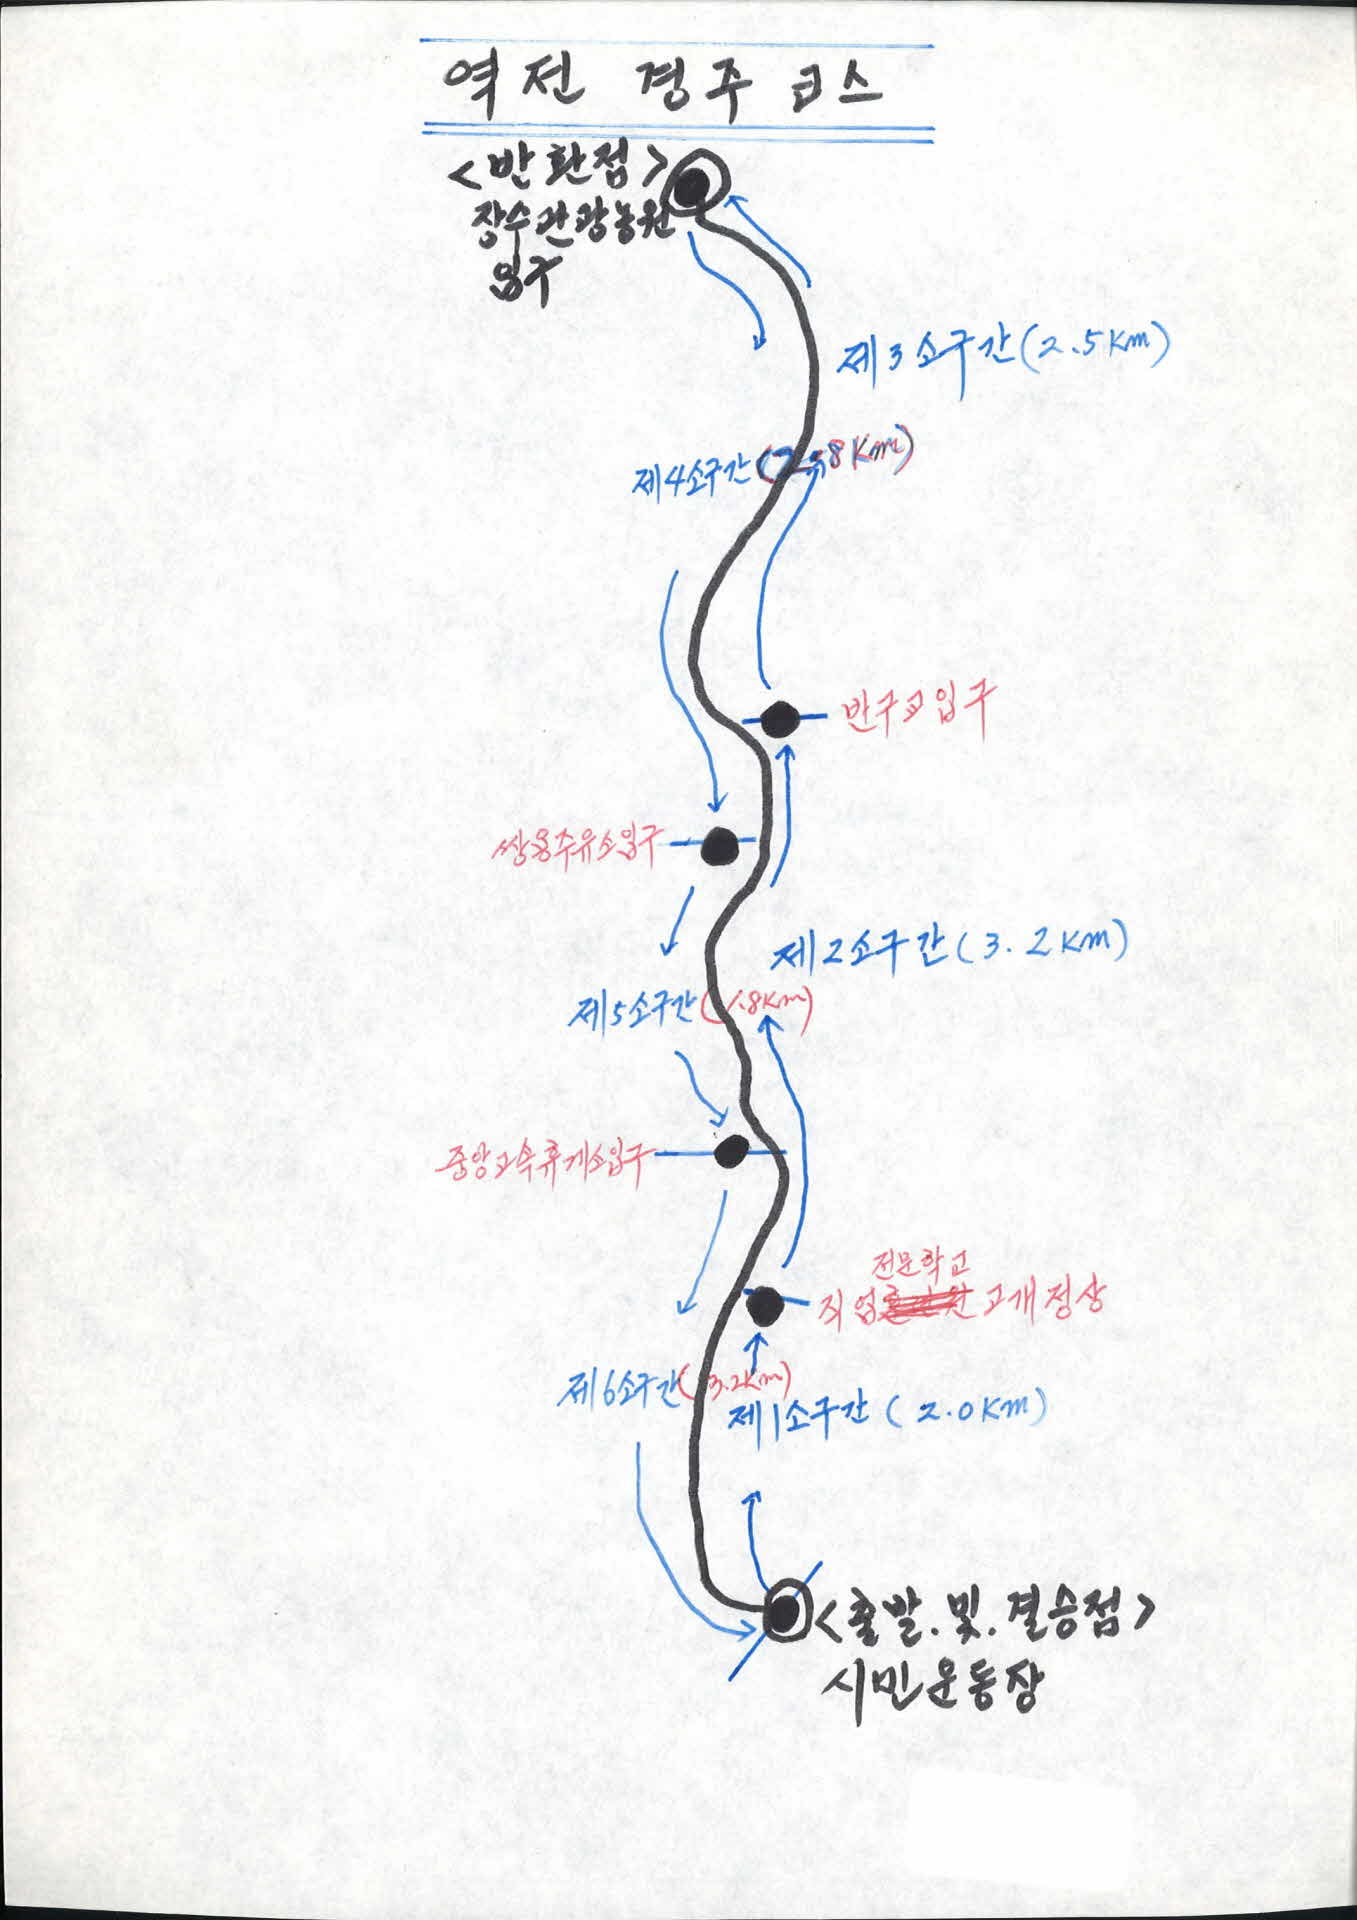 역전 경주 코스
<반환점>
장수관광농원
입구
제3소구간(2.5Km)
제4소구간(2.8Km)
반구교입구
쌍용주유소입구
제2소구간(3.2Km)
제5소구간(1.8Km)
중앙고속휴게소입구
전문학교
직업 고개정상
제6소구간(3.2Km)
제1소구간(2.0Km)
<출발.및.결승점>
시민운동장